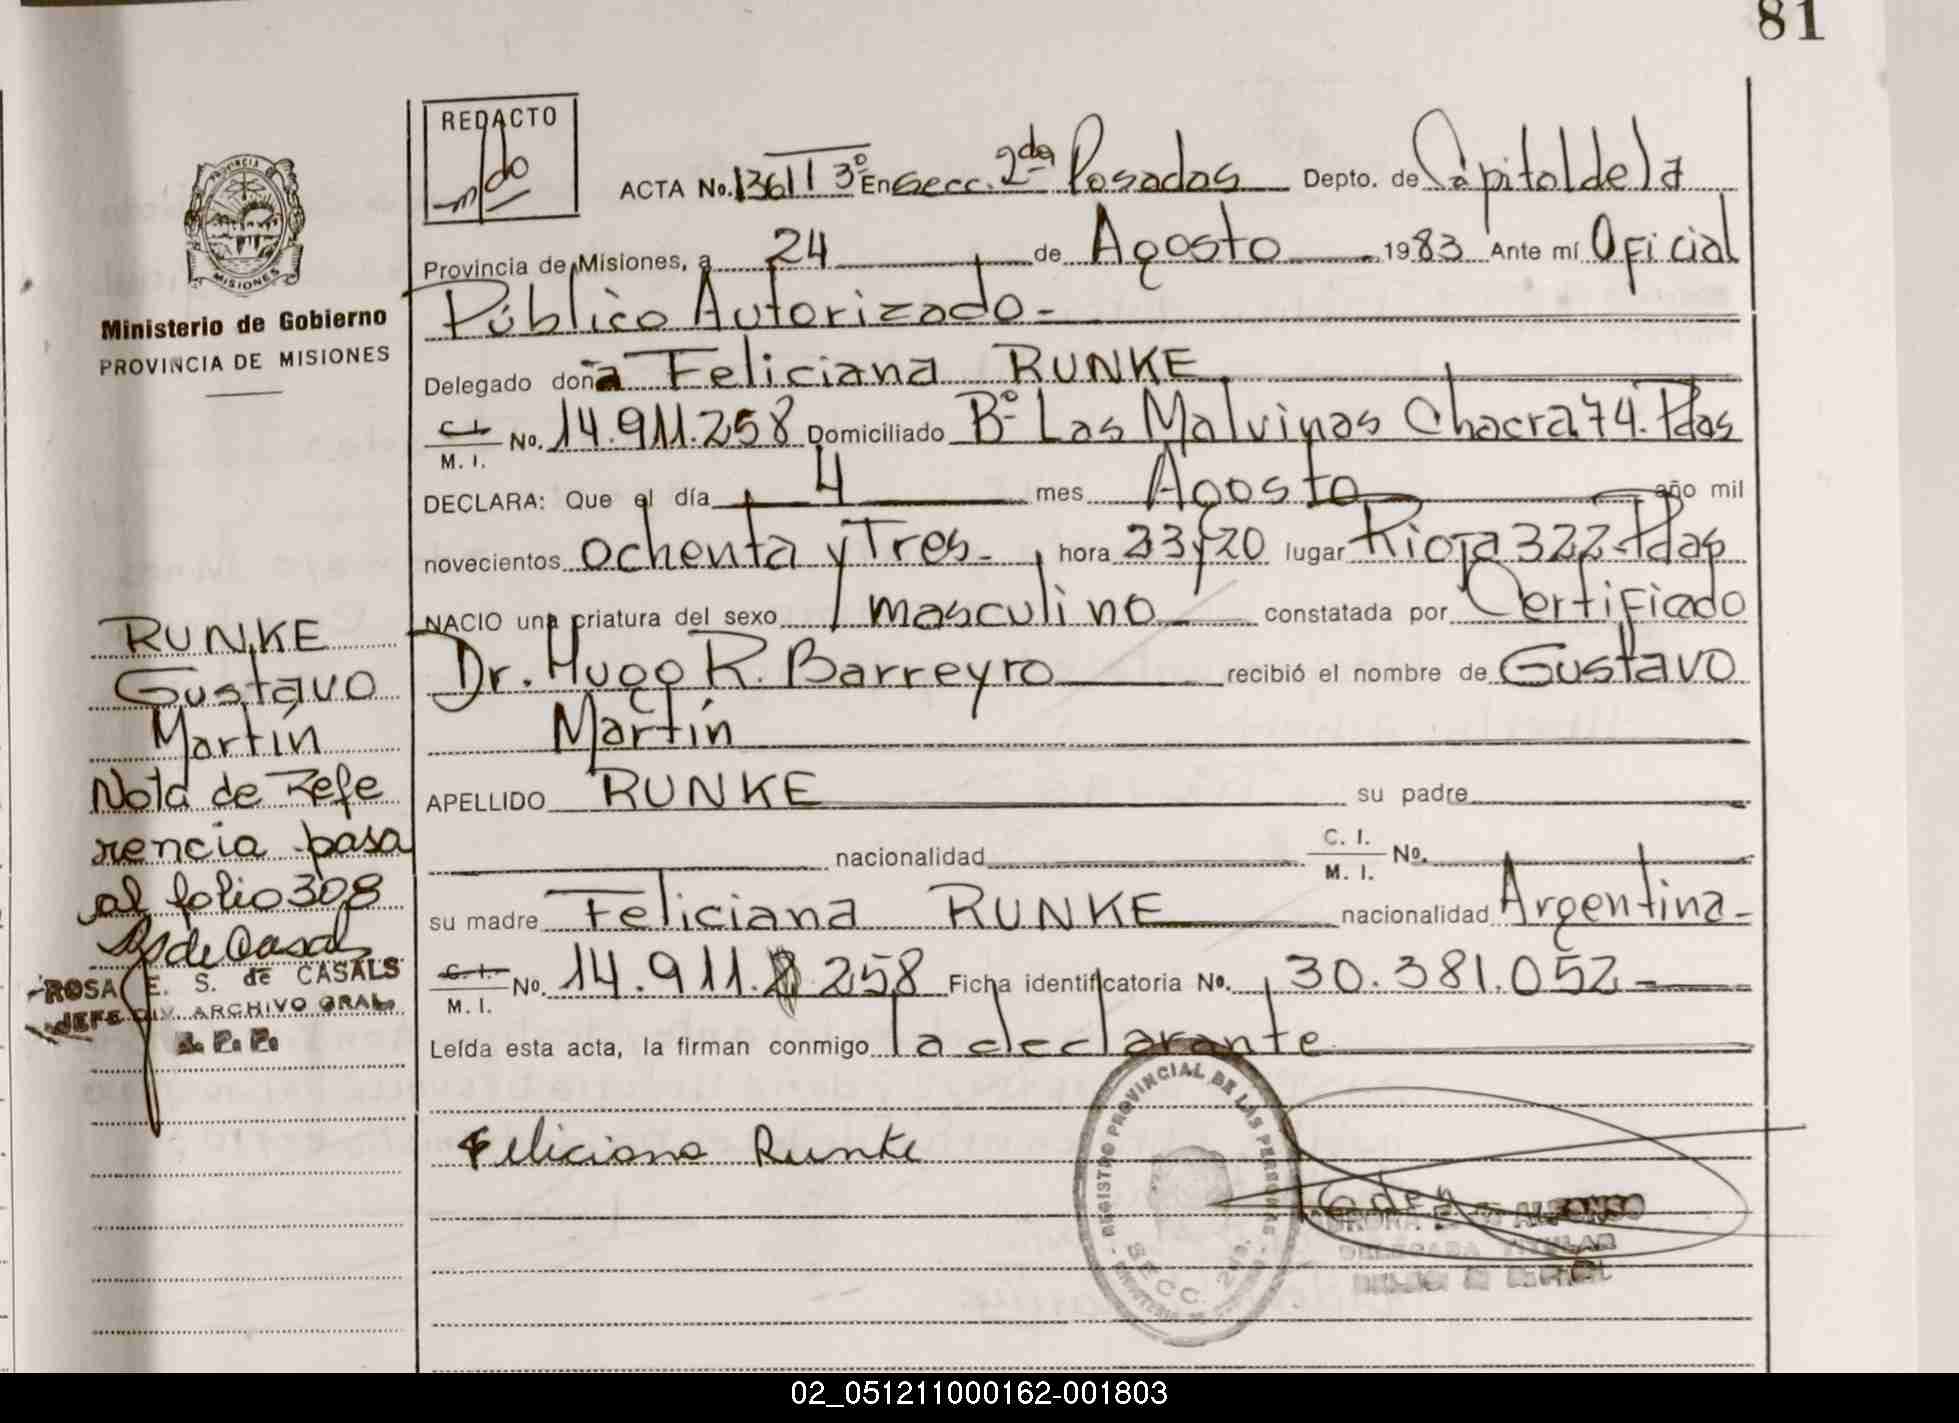 81
REDACTO
ACTA No. 1361 T 3º En Secc. 2da Posadas Depto. de Capital de la
Provincia de Misiones, a 24 de Agosto 1983 Ante mí Oficial
Público Autorizado-
Delegado doña Feliciana RUNKE
C.I. M. I. No. 14.911.258 Domiciliado Bº Las Malvinas Chacra 74. Pdas
DECLARA: Que el día 4 mes Agosto año mil
novecientos ochenta y Tres- hora 23y20 lugar Rioja 322-Pdas
NACIO una criatura del sexo masculino constatada por Certificado
Dr. Hugo R. Barreyro recibió el nombre de Gustavo
Martín
APELLIDO RUNKE su padre
nacionalidad C. I. M. I. No.
su madre Feliciana RUNKE nacionalidad Argentina-
C. I. M. I. No. 14.911.258 Ficha identificatoria No. 30.381.052
Leída esta acta, la firman conmigo la declarante
Feliciana Runke
REGISTRO PROVINCIAL DE LAS PERSONAS
SECC. 2da.
ALFONSO
TITULAR
PROVINCIA
MISIONES
Ministerio de Gobierno
PROVINCIA DE MISIONES
RUNKE
Gustavo
Martín
Nota de Refe
rencia pasa
al folio 308
RS de Casals
ROSA E. S. de CASALS
JEFE DIV. ARCHIVO GRAL.
R. P. P.
02_051211000162-001803